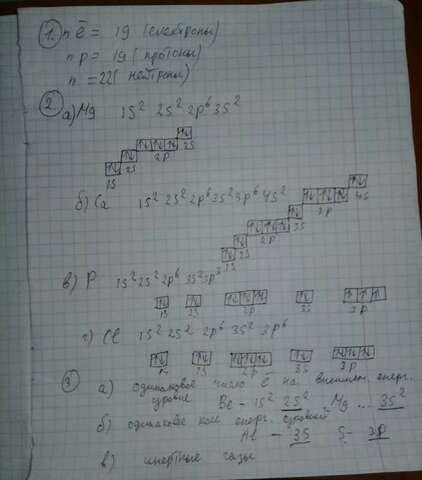 1. n ē = 19 (электроны)
n p = 19 (протоны)
n = 22 (нейтроны)
2. а) Mg 1S² 2S² 2p⁶ 3S²
1S 2S 2p 3S
б) Ca 1S² 2S² 2p⁶ 3S² 3p⁶ 4S²
1S 2S 2p 3S 3p 4S
в) P 1S² 2S² 2p⁶ 3S² 3p³
1S 2S 2p 3S 3p
г) Cl 1S² 2S² 2p⁶ 3S² 3p⁶
2S 2p 3S 3p
3 а) одинаковое число ē на внешнем. энерг.
уровне Be – 1S² 2S² Mg ... 3S²
б) одинаковое кол. энерг. уровней
Al – 3S S – 3p
в) инертные газы